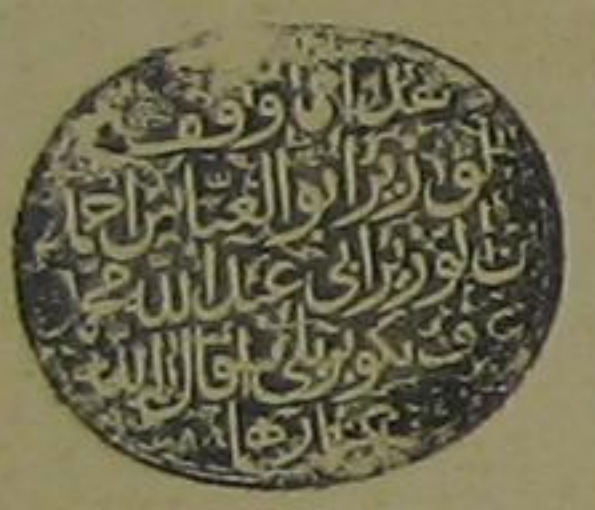 هذا ما وقف
الوزير ابو العباس احمد
بن الوزير ابي عبد الله محمد
عرف بكوبريلي اقال الله
عثارها ١٠٨٨